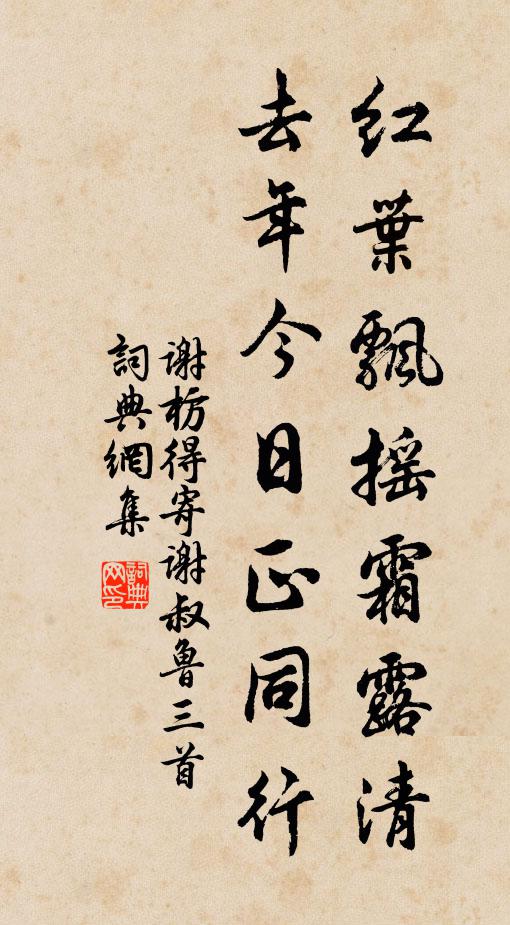 红葉飄摇霜露清
去年今日正同行
谢枋得寄谢叔鲁三首
詞典網集
詞典
网印